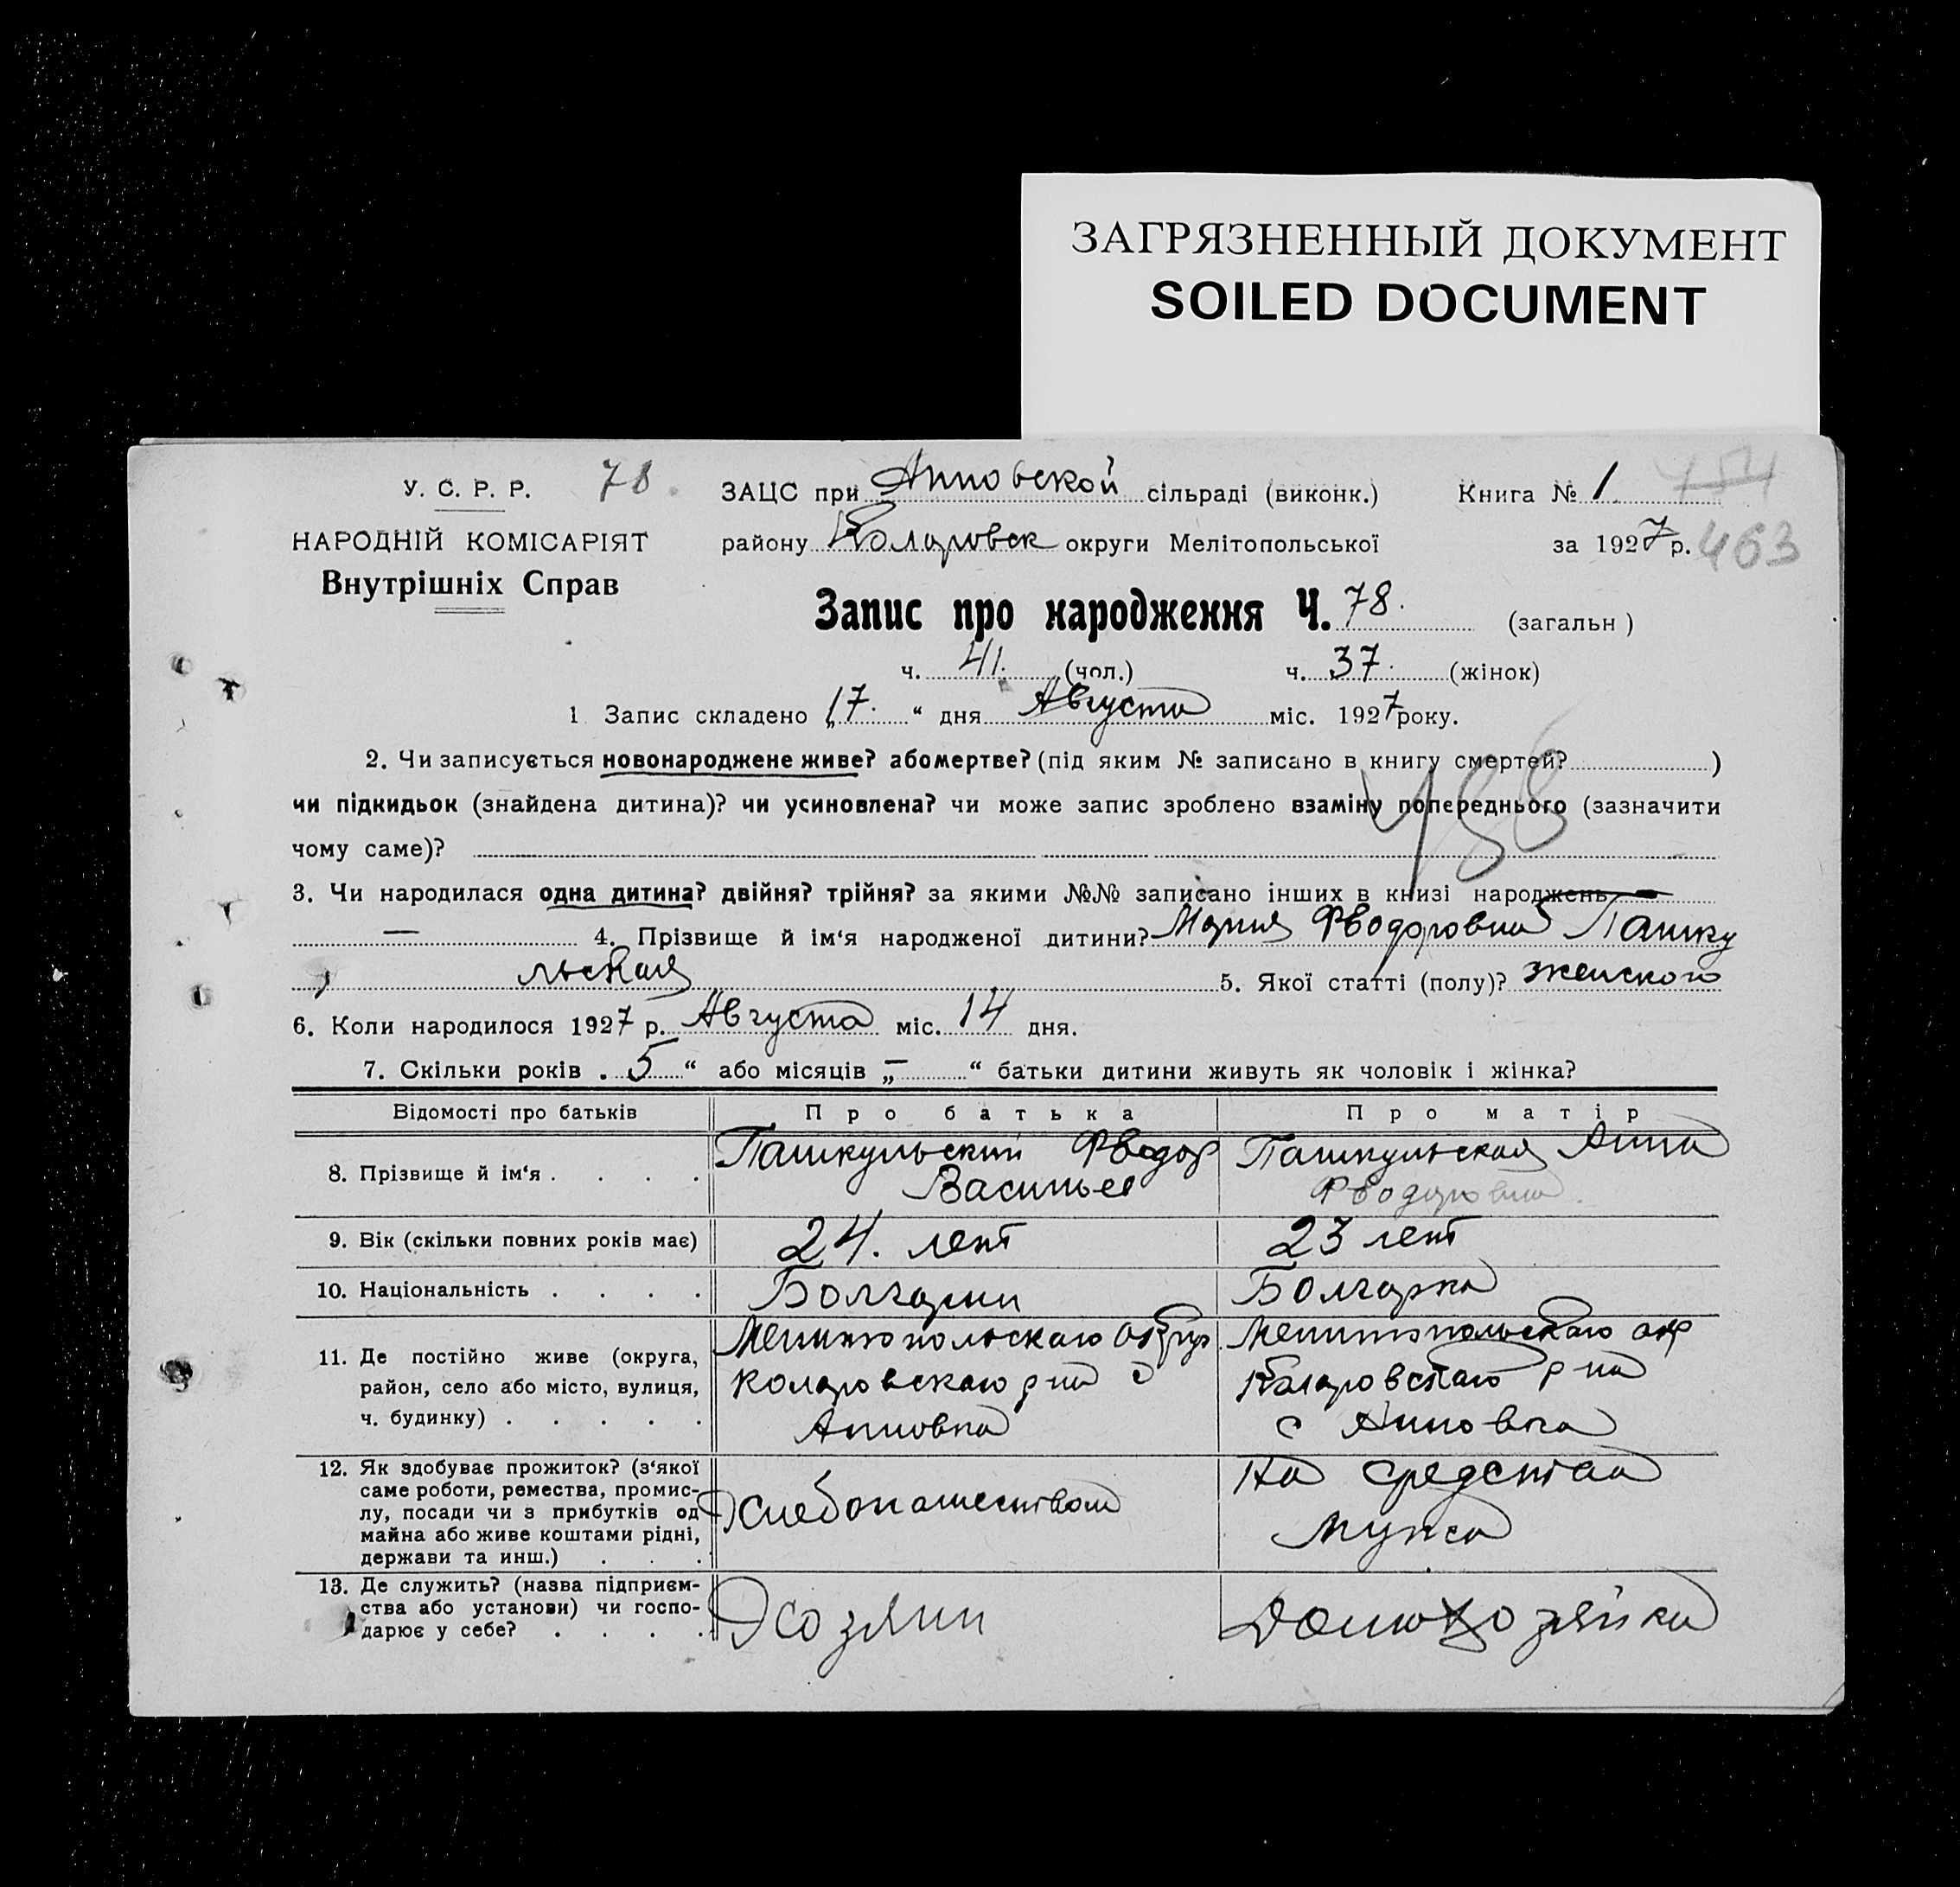 ЗАГРЯЗНЕННЫЙ ДОКУМЕНТ
SOILED DOCUMENT
У. С. Р. Р. 78.
НАРОДНІЙ КОМІСАРІЯТ
Внутрішніх Справ
ЗАЦС при Анновской сільраді (виконк.) Книга № 1 454
району Коларовск округи Мелітопольської за 1927 р. 463
Запис про народження Ч. 78. (загальн )
ч. 41. (чол.) ч. 37. (жінок)
1 Запис складено „17. “ дня Августа міс. 1927 року.
2. Чи записується новонароджене живе? або мертве? (під яким № записано в книгу смертей? )
чи підкидьок (знайдена дитина)? чи усиновлена? чи може запис зроблено взаміну попереднього (зазначити
чому саме)?
3. Чи народилася одна дитина? двійня? трійня? за якими №№ записано інших в книзі народжень —
— 4. Прізвище й ім‘я народженої дитини? Мария Фводоровна Пашку
льская 5. Якої статті (полу)? женского
6. Коли народилося 1927 р. Августа міс. 14 дня.
7. Скільки років „ 5 “ або місяців „ — “ батьки дитини живуть як чоловік і жінка?
Відомості про батьків Про батька Про матір
8. Прізвище й ім‘я . . . . Пашкульский Фводор Васильев Пашкульская Анна Фводоровна.
9. Вік (скільки повних років має) 24. лет 23 лет
10. Національність . . . . Болгарин Болгарка
11. Де постійно живе (округа, район, село або місто, вулиця, ч. будинку) . . . . . Мелитопольскаго округ. Коларовскаго р на с Анновка Мелитопольскаго окр Коларовскаго р на с Анновка
12. Як здобуває прожиток? (з‘якої саме роботи, ремества, промислу, посади чи з прибутків од майна або живе коштами рідні, держави та инш.) . . . Хлебопашеством На средства Мужа
13. Де служить? (назва підприємства або установи) чи господарює у себе? . . . . Хозяин Домохозяйка